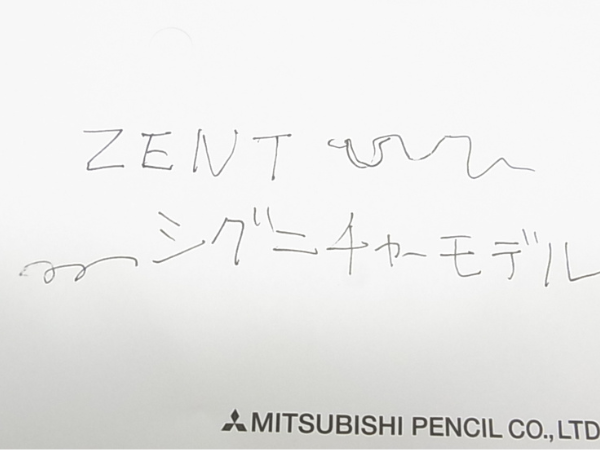 ZENT
シグニチャーモデル
MITSUBISHI PENCIL CO., LTD